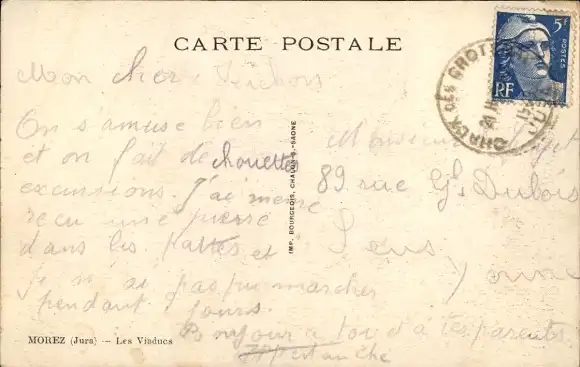 CARTE POSTALE
5F
POSTES
RF
CHAUX DES CROTTE
JURA
Mon cher
On s'amuse bien
et on fait de chouettes
excursions. J'ai même
recu une pierre
dans les pattes et
Je n'ai pas pu marcher
pendant jours.
Bonjour à toi et à tes parents.
Monsieur
89 rue Gl Dubois
Sens
Yonne
IMP. BOURGEOIS, CHALON-s-SAONE
MOREZ (Jura) — Les Viaducs